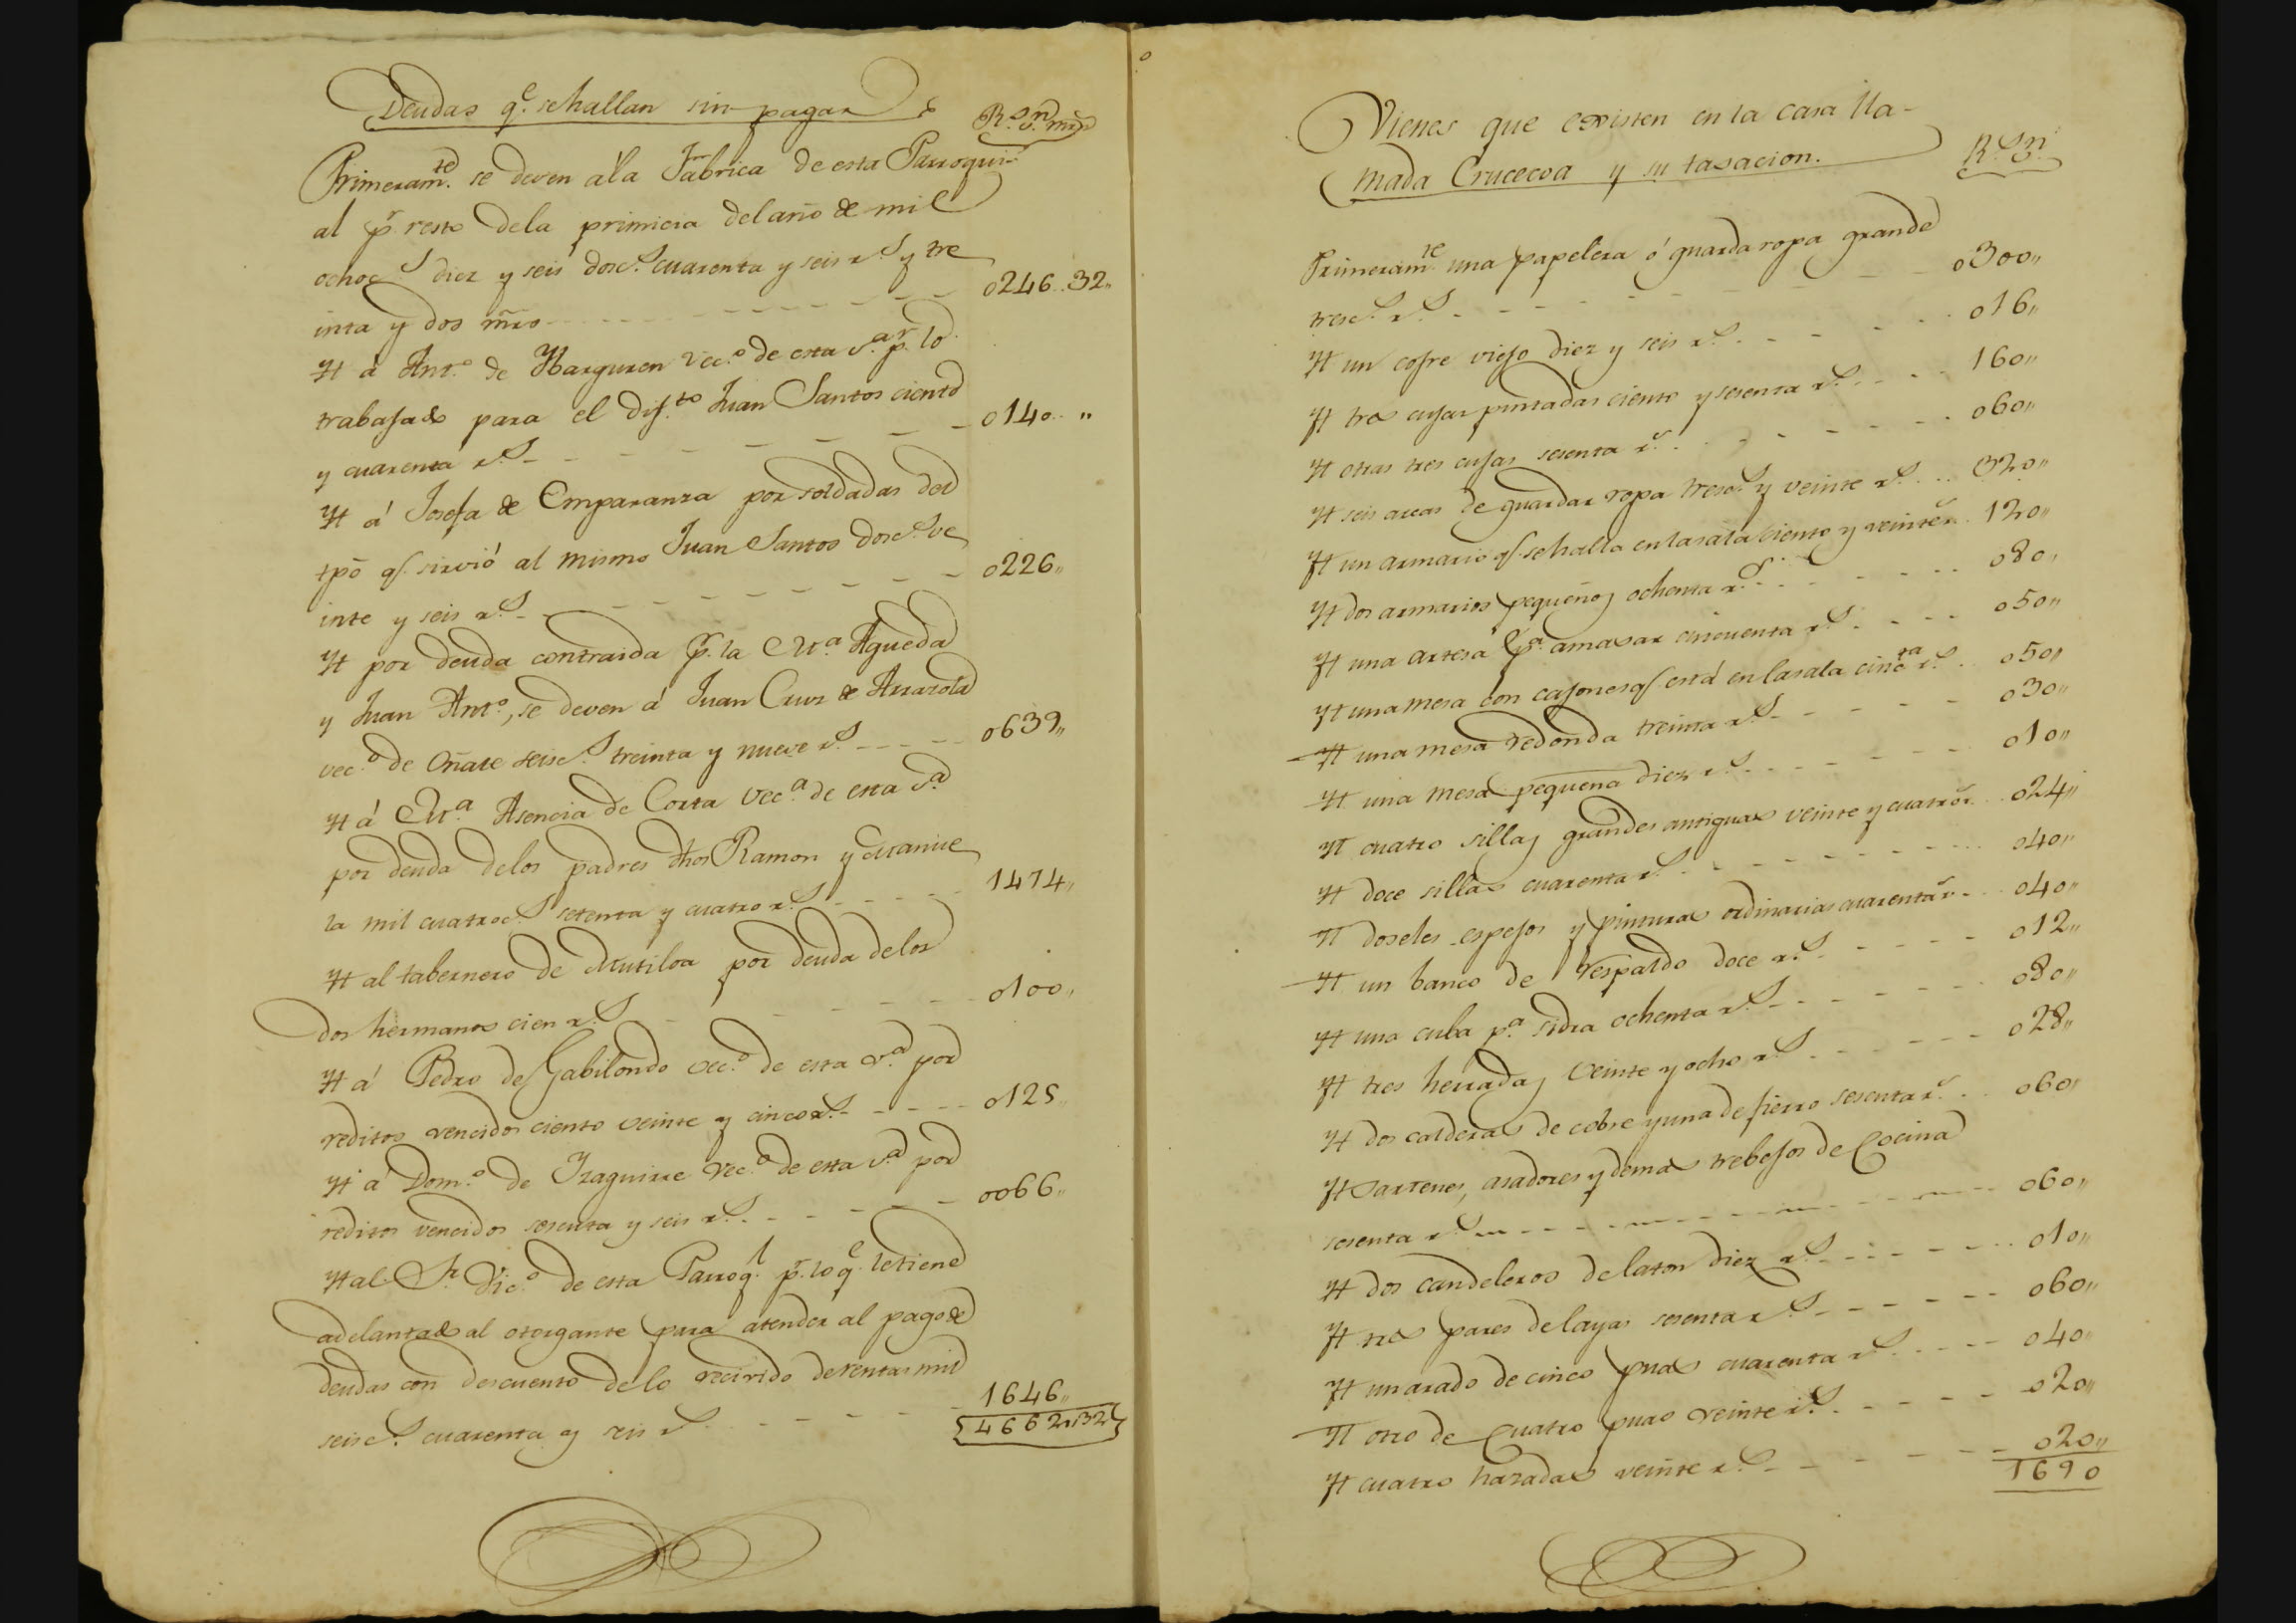 Deudas q.e se hallan sin pagar
R.s v.n mrs
Primeram.te se deven á la Fabrica de esta Parroqui-
al p.r resto de la primicia del año de mil
ochoc.s diez y seis dosc.s cuarenta y seis r.s y tre
inta y dos mrs - - - - - - 0246..32,,
Yt á Ant.o de Ybarguren vec.o de esta v.a p.r lo
trabajado para el dif.to Juan Santos ciento
y cuarenta r.s - - - - - - 0140.. ,,
Yt á Josefa de Emparanza por soldadas del
tpo q.e sirvió al mismo Juan Santos dosc.s ve
inte y seis r.s - - - - - - 0226,,
Yt por deuda contraida p.r la M.a Agueda
y Juan Ant.o, se deven á Juan Cruz de Arrazola
vec.o de Oñate seisc.s treinta y nueve r.s - - - - 0639,,
Yt á M.a Asencia de Corta vec.a de esta v.a
por deuda de los padres dhos Ramon y Manue
la mil cuatroc.s setenta y cuatro r.s - - - - 1474,,
Yt al tabernero de Mutiloa por deuda de los
dos hermanos cien r.s - - - - - 0100,,
Yt á Pedro de Gabilondo vec.o de esta v.a por
reditos vencidos ciento veinte y cinco r.s - - - - 0125,,
Yt á Dom.o de Yzaguirre vec.o de esta v.a por
reditos vencidos sesenta y seis r.s - - - - - 0066,,
Yt al S.r Vic.o de esta Parroq.l p.r lo q.e le tiene
adelantado al otorgante para atender al pago de
deudas con descuento de lo recivido de rentas mil
seisc.s cuarenta y seis r.s - - - - - 1646,,
4662,,32
Vienes que existen en la casa lla-
mada Crucecoa y su tasacion.
R.s v.n
Primeram.te una papelera ó guardaropa grande
tresc.s r.s - - - - - - 0300,,
Yt un cofre viejo diez y seis r.s - - - - 016,,
Yt tres cujas pintadas ciento y sesenta r.s - - - - 160,,
Yt otras tres cujas sesenta r.s - - - - - 060,,
Yt seis arcas de guardar ropa tresc.s y veinte r.s . . . 320,,
Yt un armario q.e se halla en la sala ciento y veinte r.s . 120,,
Yt dos armarios pequeños ochenta r.s - - - - - 080,,
Yt una artesa p.a amasar cincuenta r.s - - - - 050,,
Yt una mesa con cajones q.e está en la sala cinc.ta r.s . . 050,,
Yt una mesa redonda treinta r.s - - - - - 030,,
Yt una mesa pequeña diez r.s - - - - - 010,,
Yt cuatro sillas grandes antiguas veinte y cuatro r.s . . 024,,
Yt doce sillas cuarenta r.s - - - - - - 040,,
Yt doseles espejos y pinturas ordinarias cuarenta r.s - . . 040,,
Yt un banco de respaldo doce r.s - - - - 012,,
Yt una cuba p.a sidra ochenta r.s - - - - - 080,,
Yt tres herradas veinte y ocho r.s - - - - - 028,,
Yt dos calderas de cobre y una de fierro sesenta r.s . . 060,,
Yt sartenes, asadores y demas trebejos de cocina
sesenta r.s - - - - - - - 060,,
Yt dos candeleros de laton diez r.s - - - - - 010,,
Yt tres pares de layas sesenta r.s - - - - - 060,,
Yt un arado de cinco puas cuarenta r.s - - - - 040,,
Yt otro de cuatro puas veinte r.s - - - - 020,,
Yt cuatro hazadas veinte r.s - - - - - 020,,
1690